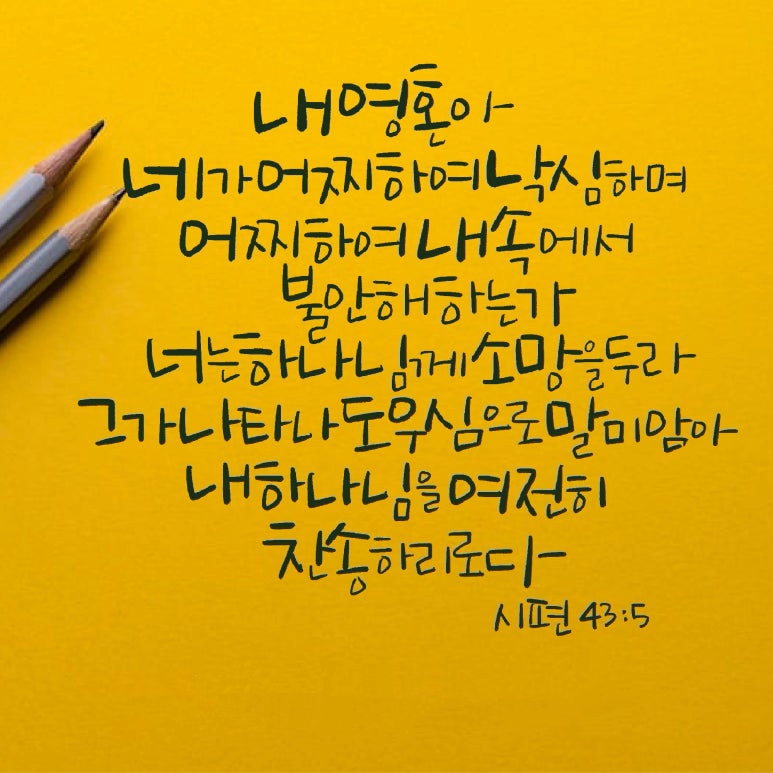 내 영혼아
네가 어찌하여 낙심하며
어찌하여 내 속에서
불안해 하는가
너는 하나님께 소망을 두라
그가 나타나 도우심으로 말미암아
내 하나님을 여전히
찬송하리로다
시편 43:5